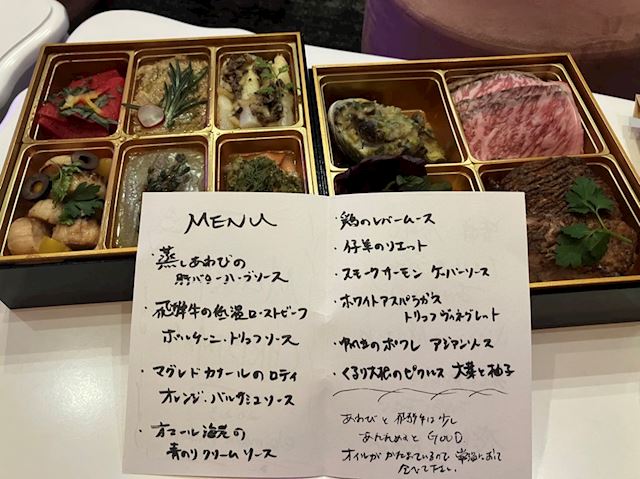 MENU
・蒸しあわびの
肝バターハーブソース
・飛騨牛の低温ローストビーフ
ポルチーニ・トリュフソース
・マグレドカナールのロティ
オレンジ・バルサミコソース
・オマール海老の
青のりクリームソース
・鶏のレバームース
・仔羊のリエット
・スモークサーモン ケッパーソース
・ホワイトアスパラガス
トリュフヴィネグレット
・帆立のポワレ アジアンソース
・くるり大根のピクルス 大葉と柚子
あわびと飛騨牛は少し
あたためると GOOD.
オイルがかたまっているので 常温において
食べて下さい。